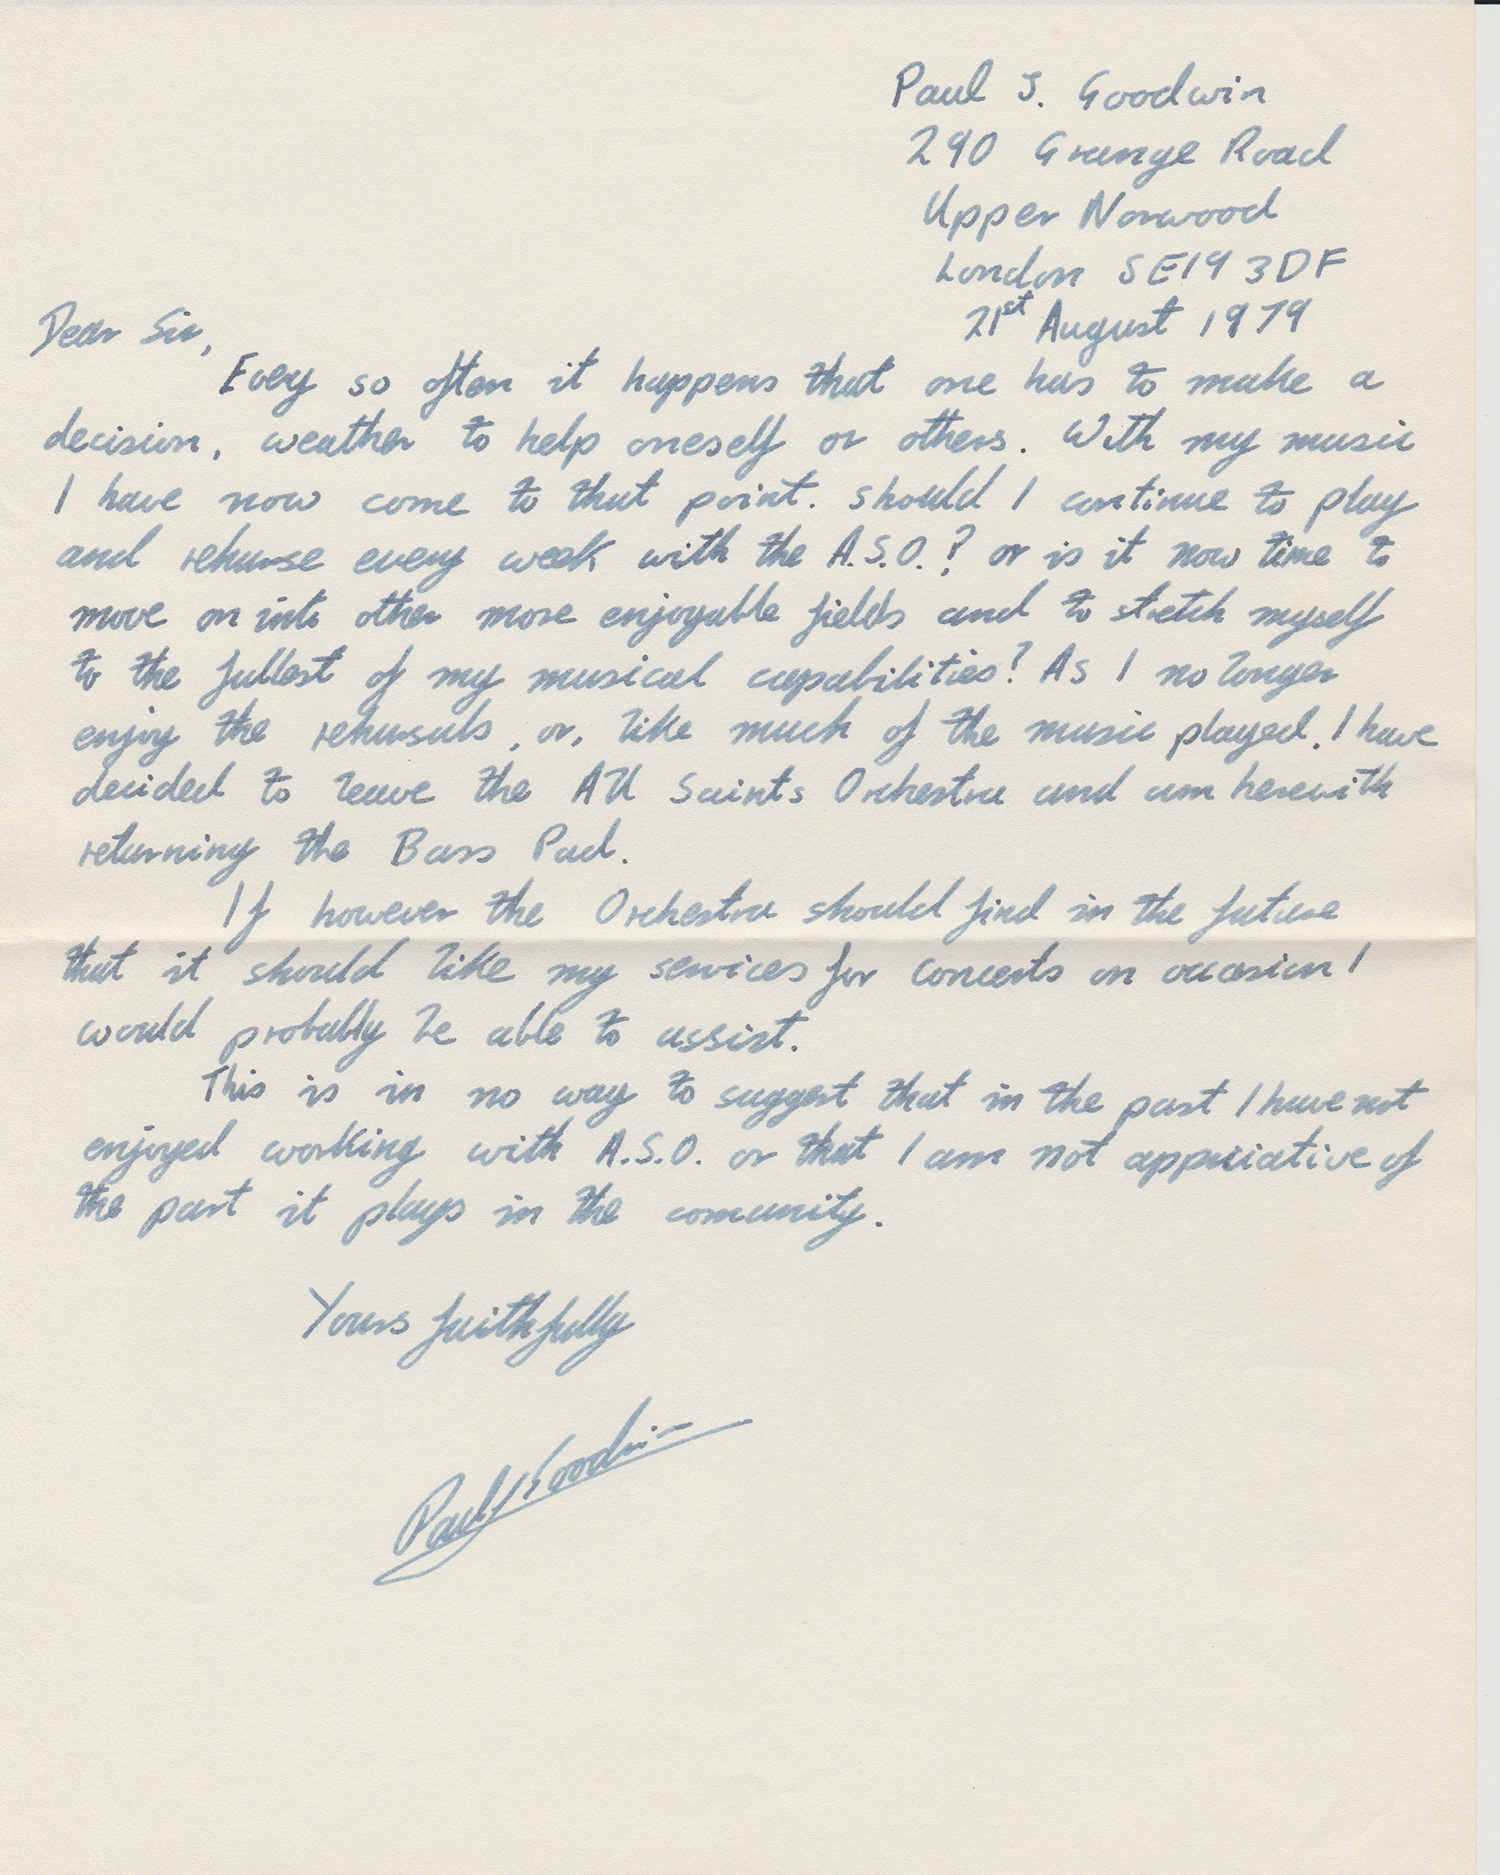 Paul S. Goodwin
290 Grange Road
Upper Norwood
London SE19 3DF
21st August 1979
Dear Sir,
Evey so often it happens that one has to make a
decision, weather to help oneself or others. With my music
I have now come to that point. Should I continue to play
and rehurse every week with the A.S.O.? or is it now time to
move on into other more enjoyable fields and to stretch myself
to the fullest of my musical capabilities? As I no longer
enjoy the rehursals, or, like much of the music played. I have
decided to leave the All Saints Orchestra and am herewith
returning the Bass Pad.
If however the Orchestra should find in the future
that it should like my services for concerts on occasion I
would probably be able to assist.
This is in no way to suggest that in the past I have not
enjoyed working with A.S.O. or that I am not appreciative of
the part it plays in the comunity.
Yours faithfully
Paul S Goodwin